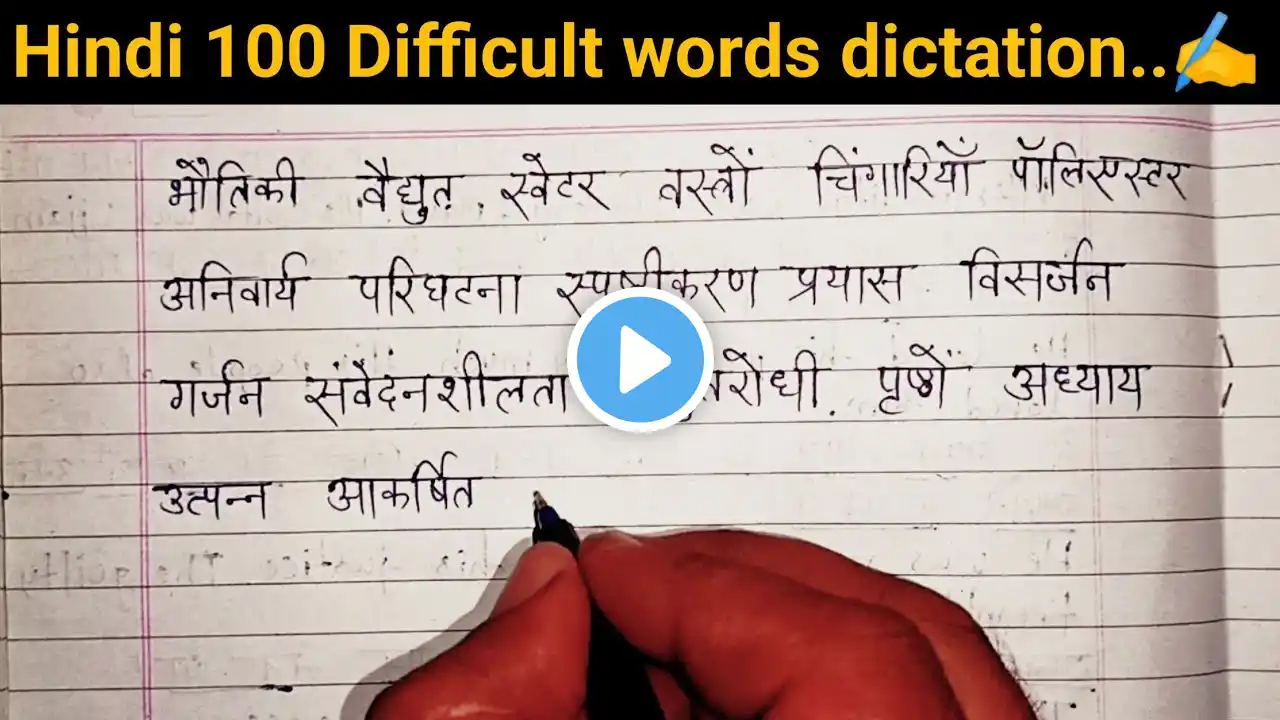 Hindi 100 Difficult words dictation..
भौतिकी वैद्युत स्वेटर वस्त्रों चिंगारियाँ पॉलिएस्टर
अनिवार्य परिघटना स्पष्टीकरण प्रयास विसर्जन
गर्जन संवेदनशीलता पृष्ठों अध्याय
उत्पन्न आकर्षित